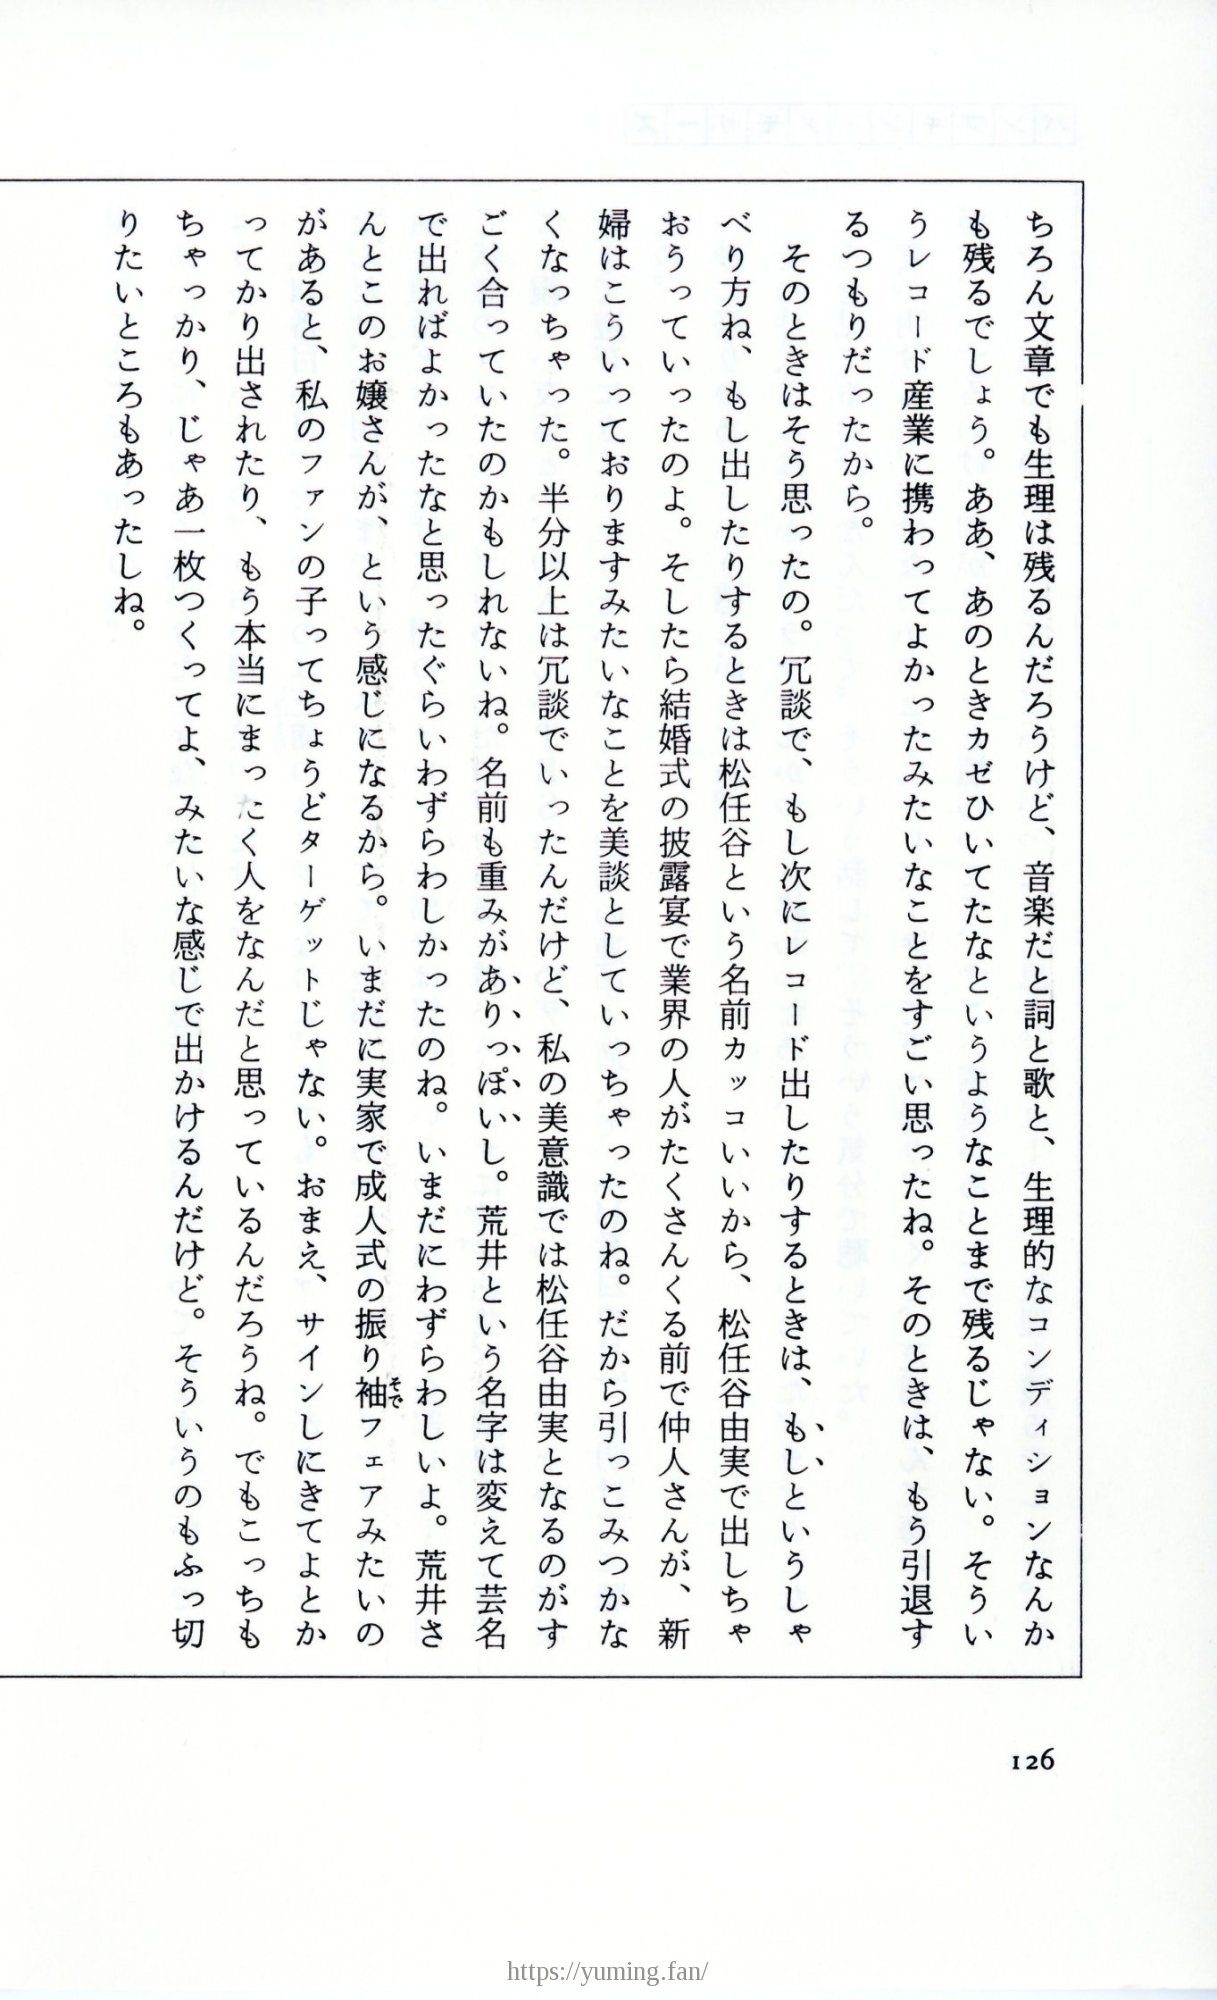 ちろん文章でも生理は残るんだろうけど、音楽だと詞と歌と、生理的なコンディションなんか
も残るでしょう。ああ、あのときカゼひいてたなというようなことまで残るじゃない。そうい
うレコード産業に携わってよかったみたいなことをすごい思ったね。そのときは、もう引退す
るつもりだったから。
　そのときはそう思ったの。冗談で、もし次にレコード出したりするときは、もしというしゃ
べり方ね、もし出したりするときは松任谷という名前カッコいいから、松任谷由実で出しちゃ
おうっていったのよ。そしたら結婚式の披露宴で業界の人がたくさんくる前で仲人さんが、新
婦はこういっておりますみたいなことを美談としていっちゃったのね。だから引っこみつかな
くなっちゃった。半分以上は冗談でいったんだけど、私の美意識では松任谷由実となるのがす
ごく合っていたのかもしれないね。名前も重みがありっぽいし。荒井という名字は変えて芸名
で出ればよかったなと思ったぐらいわずらわしかったのね。いまだにわずらわしいよ。荒井さ
んとこのお嬢さんが、という感じになるから。いまだに実家で成人式の振り袖フェアみたいの
そで
があると、私のファンの子ってちょうどターゲットじゃない。おまえ、サインしにきてよとか
ってかり出されたり、もう本当にまったく人をなんだと思っているんだろうね。でもこっちも
ちゃっかり、じゃあ一枚つくってよ、みたいな感じで出かけるんだけど。そういうのもふっ切
りたいところもあったしね。
126
https://yuming.fan/